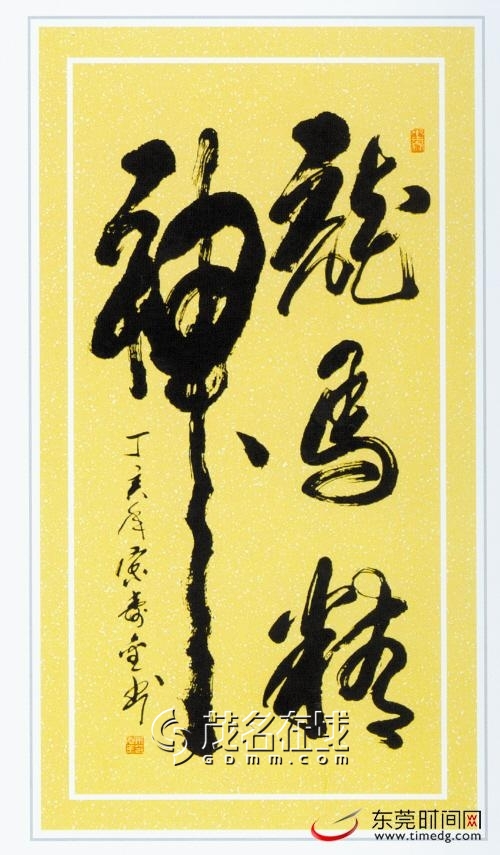 龍馬精
神
丁亥年
壽金书
茂名在线
GDMM.COM
东莞时间网
www.timedg.com